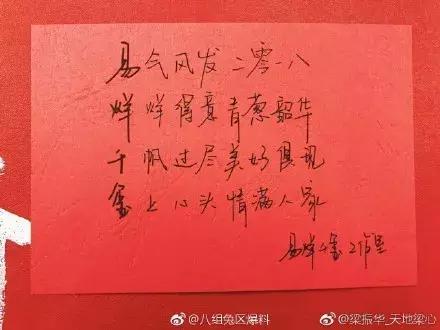 易气风发二零一八
烊烊得意青葱韶华
千帆过尽美好俱现
玺上心头情满人家
易烊千玺工作室
@八组兔区爆料
@梁振华_天地梁心